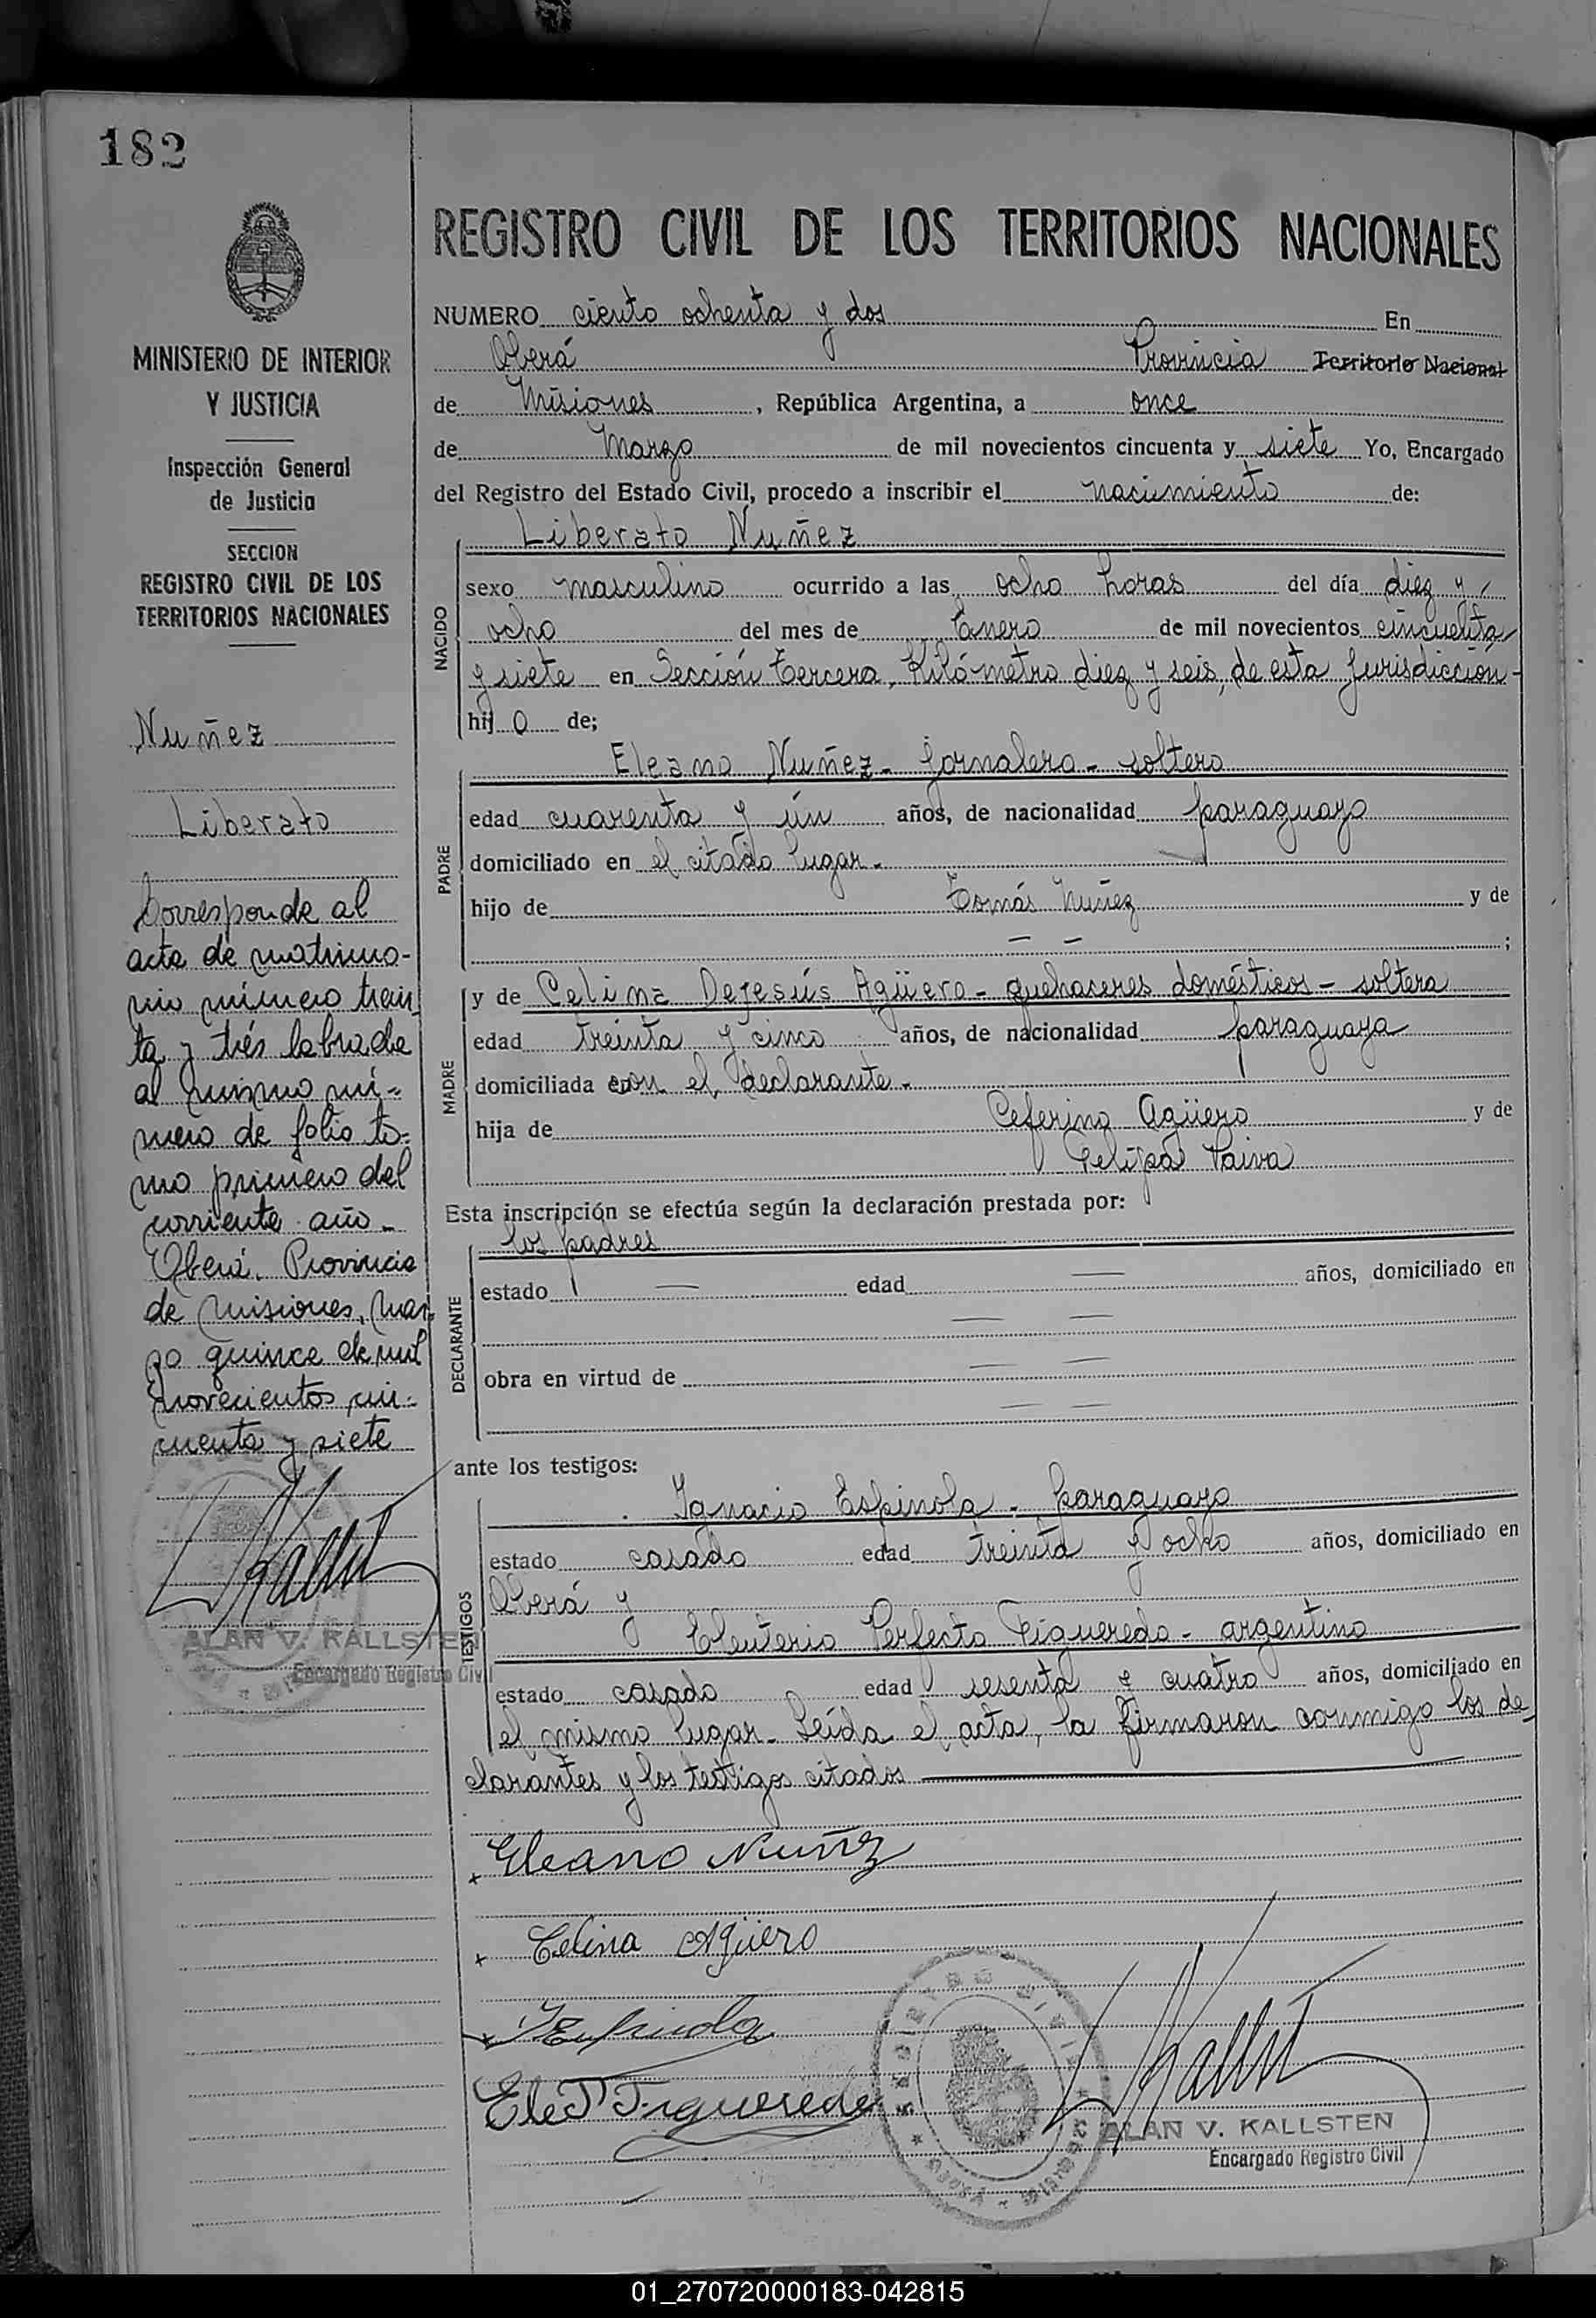 182
MINISTERIO DE INTERIOR
Y JUSTICIA
Inspección General
de Justicia
SECCION
REGISTRO CIVIL DE LOS
TERRITORIOS NACIONALES
Nuñez
Liberato
Corresponde al
acta de matrimo-
nio número trein
ta y trés labrada
al mismo nú-
mero de folio to-
mo primero del
corriente año -
Oberá, Provincia
de Misiones, mar-
zo quince de mil
novecientos cin-
cuenta y siete
ALAN V. KALLSTEN
Encargado Registro Civil
REGISTRO CIVIL DE LOS TERRITORIOS NACIONALES
NUMERO ciento ochenta y dos En
Oberá Provincia Territorio Nacional
de Misiones , República Argentina, a once
de Marzo de mil novecientos cincuenta y siete Yo, Encargado
del Registro del Estado Civil, procedo a inscribir el nacimiento de:
NACIDO
Liberato Nuñez
sexo masculino ocurrido a las ocho horas del día diez y
ocho del mes de Enero de mil novecientos cincuenta
y siete en Sección Tercera, Kilómetro diez y seis, de esta Jurisdicción -
hijo de;
PADRE
Eleano Nuñez - Jornalero - soltero
edad cuarenta y ún años, de nacionalidad paraguayo
domiciliado en el citado lugar -
hijo de Tomás Nuñez y de
— — ;
MADRE
y de Celina Dejesús Agüero - quehaceres domésticos - soltera
edad treinta y cinco años, de nacionalidad paraguaya
domiciliada con el declarante -
hija de Ceferino Agüero y de
Felipa Paiva
Esta inscripción se efectúa según la declaración prestada por:
DECLARANTE
los padres
estado — edad — años, domiciliado en
— —
obra en virtud de — —
— —
ante los testigos:
TESTIGOS
Ignacio Espinola - paraguayo
estado casado edad treinta y ocho años, domiciliado en
Oberá y
Eleuterio Perfecto Figueredo - argentino
estado casado edad sesenta y cuatro años, domiciliado en
el mismo lugar - Leída el acta, la firmaron conmigo los de-
clarantes y los testigos citados
Eleano Nuñez
Celina Agüero
Ele P Figueredo
REGISTRO CIVIL
ALAN V. KALLSTEN
Encargado Registro Civil
01_270720000183-042815